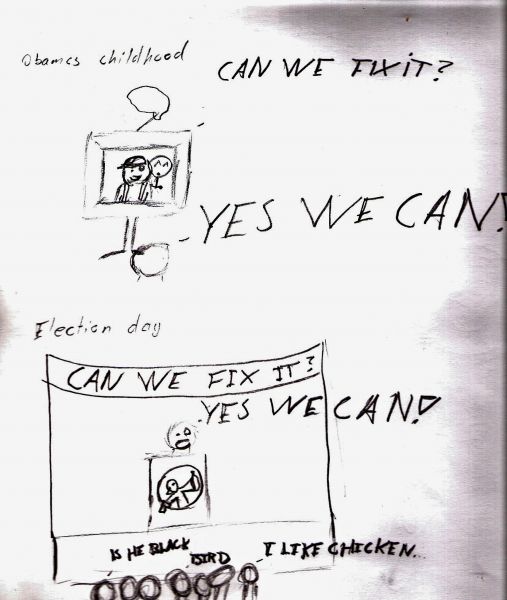 Obamas childhood
CAN WE FIX IT?
YES WE CAN!
Election day
CAN WE FIX IT?
YES WE CAN!
IS HE BLACK
BIRD
I LIKE CHICKEN...